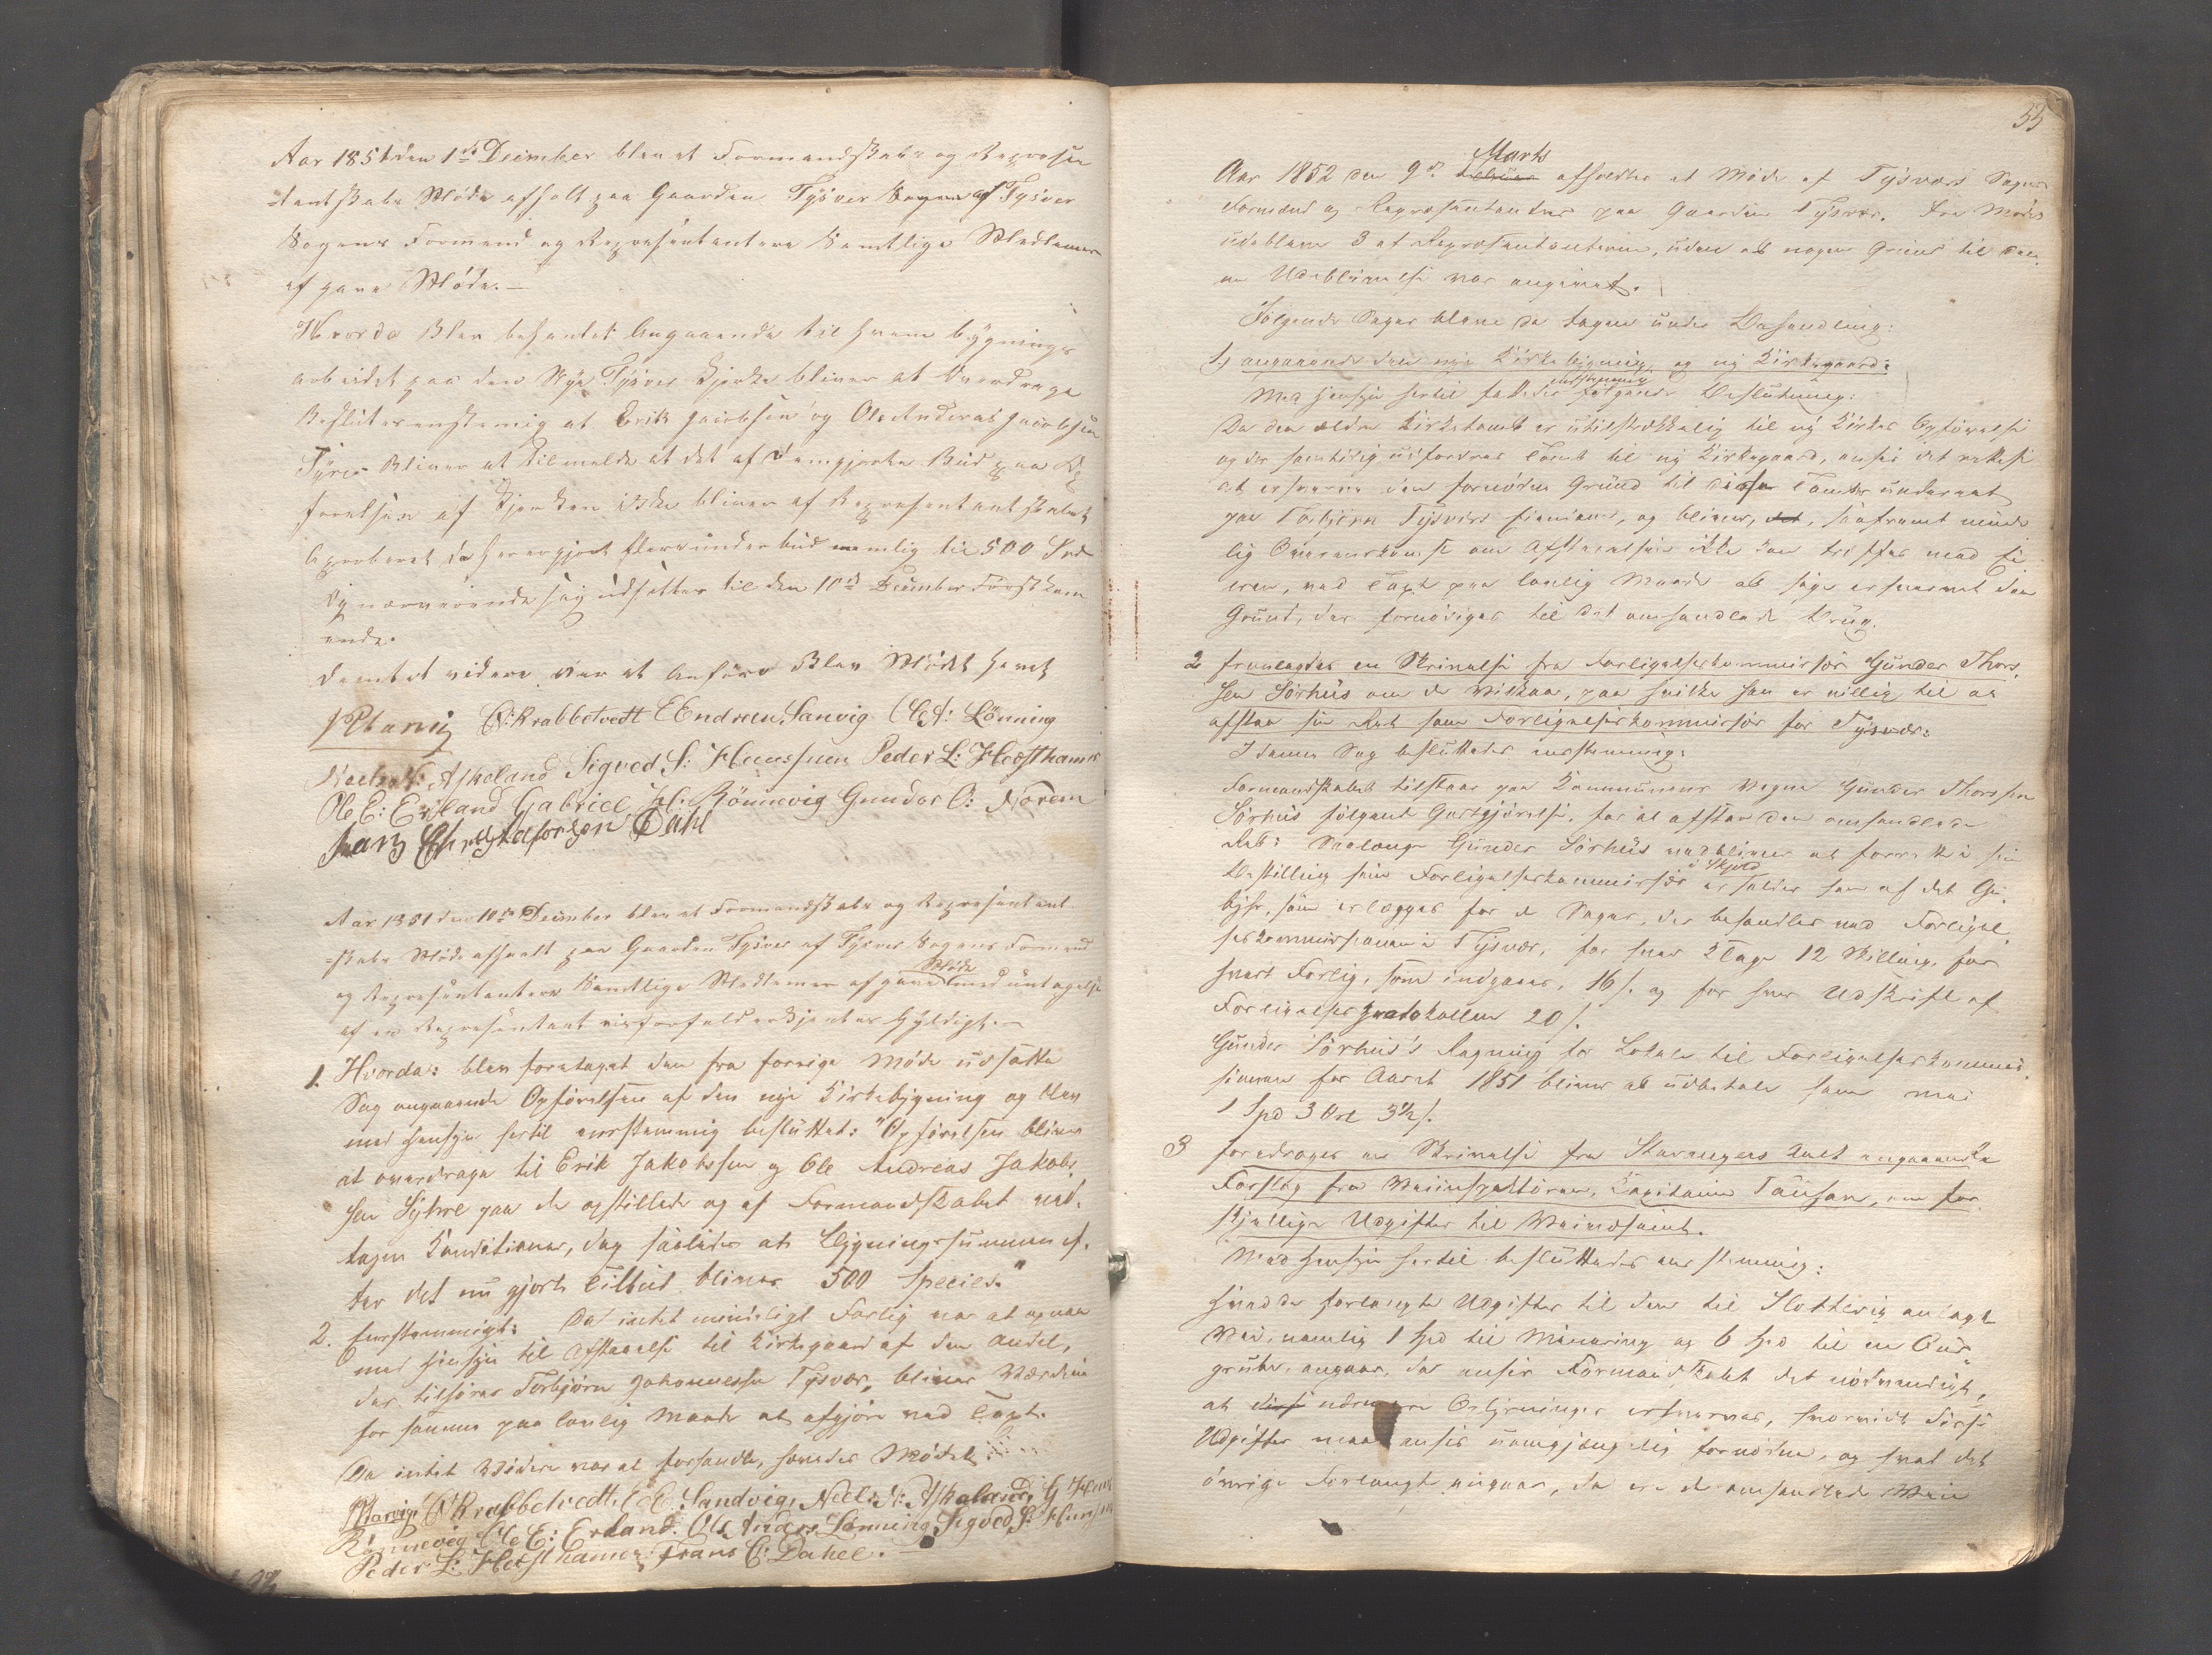 Aar 1851 den 1ste Deimber blev et Formandskabs og Represen
=tantskabs Møde afholt paa Gaarden Tysver Sogn af Tysver
Sogens Formend og Representantere Samtlige Medlemer
af gave Møde.—
Hvorda Blev behantlet Angaaende til hvem bygnings
arbeidet paa den Nye Tysver Kjerke bliver at Overdrage
Beslutes enstemig at Erik Jacobsen og Ole Andreas Jacobsen
Syre Bliver at tilmelde at det af Dem gjorte Bud paa Op
førelsen af Kjerken ikke bliver af Representantskabet
Aproberet da her er gjort flere underbud nemlig til 500 Spd
Og nerverende sag udsettes til den 10de Deeimber Førstkom
ende.
Da intet videre var at Anføre Blev Mødet hevet
P Tarvig N: Krabbetvedt E Endresen Sanvig O: A: Lønning
Neels N: Askeland Sigved S: Heensuen Peder L: Hersthamer
Ole E: Erland Gabriel H: Rönnevig Gunder O: Norem
Franz Christoforsen Dahl
Aar 1851 den 10de Deeimber blev et Formandskabs og Representant
=skabs Møde afhaalt paa Gaarden Tysver af Tysver Sogens Formend
og Representantere Samtlige Medlemer af gave Møde med untagelse
af en Representant vis forfald erkjentes Gyldigt.—
1. Hvorda: blev foretaget den fra forrige Møde udsatte
Sag angaaende Opførelsen af den nye Kirkebygning og blev
med Hensyn hertil eenstemmig besluttet: "Opførelsen bliver
at overdrage til Erik Jakobsen og Ole Andreas Jakob-
sen Syhre paa de opstillede og af Formandskabet ved-
tagne Konditioner, dog saaledes at Bygningssummen ef-
ter det nu gjorte Tilbud bliver 500 Species."
2. Eenstemmigt: Da intet mindeligt Forlig var at opnaae
med Hensyn til Afstaaelse til Kirkegaard af den Andel,
der tilhører Torbjørn Johannessen Tysvær, bliver Værdien
for samme paa lovlig Maade at afgjøre ved Taxt.
Da intet Videre var at forhandle, hævedes Mødet.
P Tarvig N Krabbetvedt, E E Sandvig, Neels N: Askeland, G H
Rönnevig Ole E: Erland. Ole Anders Lønning, Sigved S:
Peder L: Hersthamer Frans C: Dahel.
55
Aar 1852 den 9de Marts afholdtes et Møde af Tysværs Sogns
Formænd og Repræsentanter paa Gaarden Tysvær. Fra Mødet
udebleve 3 af Repræsentanterne, uden at nogen Grund til den-
ne Udeblivelse var angivet.
Følgende Sager bleve da tagne under Behandling:
1) angaaende den nye Kirkebygning og ny Kirkegaard:
Med Hensyn hertil fattedes eenstemmig følgende Beslutning:
Da den ældre Kirketomt er utilstrækkelig til ny Kirkes Opførelse
og der samtidig udfordres Tomt til ny Kirkegaard, ansees det rettest
at erhverve den fornødne Grund til disse Tomter underet
paa Torbjørn Tysværs Eiendom, og bliver, det, saafremt minde
lig Overenskomst om Afstaaelsen ikke kan træffes med Ei
eren, ved Taxt paa lovlig Maade at søge erhvervet den
Grund, der fornødiges til det omhandlede Brug.
2 fremlagdes en Skrivelse fra Forligelseskommissær Gunder Thors-
sen Sørhus om de Vilkaar, paa hvilke han er villig til at
afstaae sin Ret som Forligelseskommissær for Tysvær:
I denne Sag besluttedes eenstemmig:
Formandskabet tilstaaer paa Kommunens Vegne Gunder Thorssen
Sørhus følgende Godtgjørelse, for at afstaae den omhandlede
Ret: Saalænge Gunder Sørhus vedbliver at forrette sin
Bestilling som Forligelseskommissær i Skjold erholder han af det Ge-
byhr, som erlægges for de Sager, der behandles ved Forligel-
seskommissionen i Tysvær, for hver Klage 12 Skilling, for
hvert Forlig, som indgaaes, 16 s. og for hver Udskrift af
Forligelsesprotokollen 20 s.
Gunder Sørhus's Regning for Lokale til Forligelseskommis-
sionen for Aaret 1851 bliver at udbetale ham med
1 Spd 3 Ort 3½ s.
3 foredroges en Skrivelse fra Stavangers Amt angaaende
Forslag fra Veiinspektøren, Kapitain Tausan, om for
skjellige Udgifter til Veivæsenet.
Med Hensyn hertil besluttedes eenstemmig:
Hvad de forlangte Udgifter til den til Slottevig anlagte
Vei, nemlig 1 Spd til Minering og 6 Spd til en Gruus-
grube, angaaer, da anseer Formandskabet det nødvendigt,
at disse nærmere Oplysninger erhverves, hvorvidt disse
Udgifter maae ansees uomgjængelig fornødne, og hvad det
øvrige Forlangte angaaer, da ere de omhandlede Veie